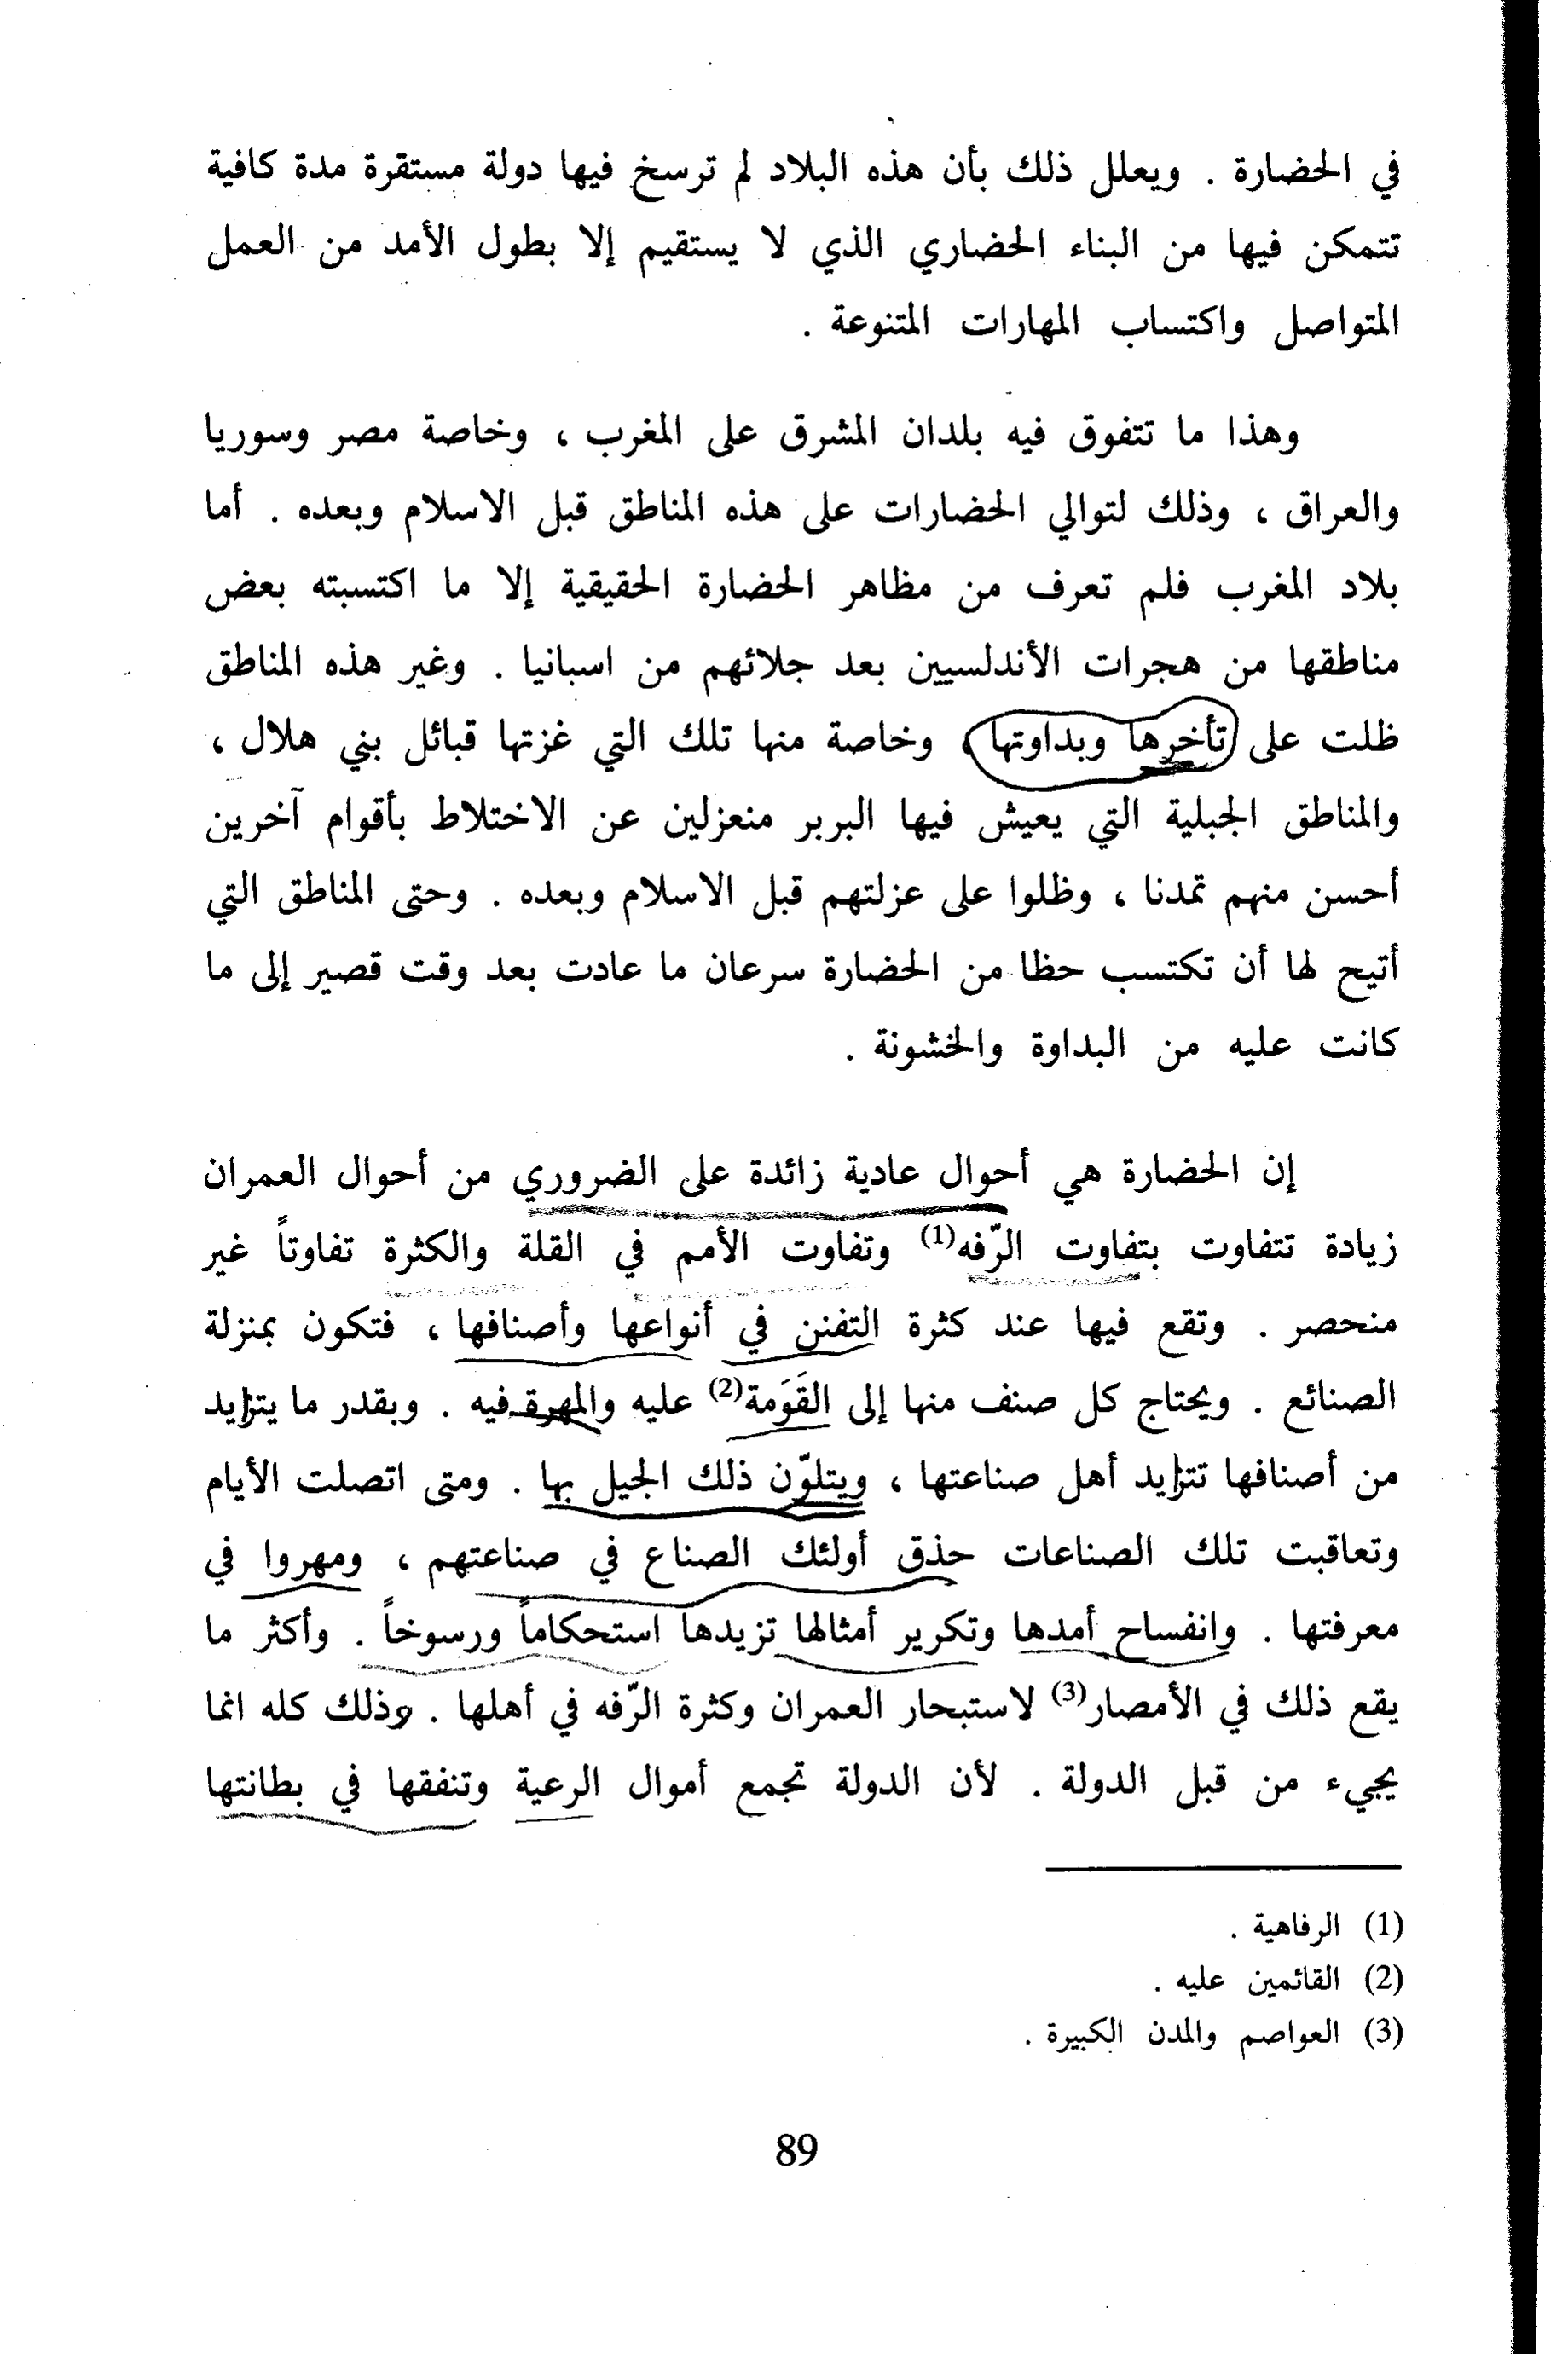 في الحضارة . ويعلل ذلك بأن هذه البلاد لم ترسخ فيها دولة مستقرة مدة كافية
تتمكن فيها من البناء الحضاري الذي لا يستقيم إلا بطول الأمد من العمل
المتواصل واكتساب المهارات المتنوعة .
وهذا ما تتفوق فيه بلدان المشرق على المغرب ، وخاصة مصر وسوريا
والعراق ، وذلك لتوالي الحضارات على هذه المناطق قبل الاسلام وبعده . أما
بلاد المغرب فلم تعرف من مظاهر الحضارة الحقيقية إلا ما اكتسبته بعض
مناطقها من هجرات الأندلسيين بعد جلائهم من اسبانيا . وغير هذه المناطق
ظلت على تأخرها وبداوتها ، وخاصة منها تلك التي غزتها قبائل بني هلال ،
والمناطق الجبلية التي يعيش فيها البربر منعزلين عن الاختلاط بأقوام آخرين
أحسن منهم تمدنا ، وظلوا على عزلتهم قبل الاسلام وبعده . وحتى المناطق التي
أتيح لها أن تكتسب حظا من الحضارة سرعان ما عادت بعد وقت قصير إلى ما
كانت عليه من البداوة والخشونة .
إن الحضارة هي أحوال عادية زائدة على الضروري من أحوال العمران
زيادة تتفاوت بتفاوت الرّفه(1) وتفاوت الأمم في القلة والكثرة تفاوتاً غير
منحصر . وتقع فيها عند كثرة التفنن في أنواعها وأصنافها ، فتكون بمنزلة
الصنائع . ويحتاج كل صنف منها إلى القَوَمة(2) عليه والمهرة فيه . وبقدر ما يتزايد
من أصنافها تتزايد أهل صناعتها ، ويتلوّن ذلك الجيل بها . ومتى اتصلت الأيام
وتعاقبت تلك الصناعات حذق أولئك الصناع في صناعتهم ، ومهروا في
معرفتها . وانفساح أمدها وتكرير أمثالها تزيدها استحكاماً ورسوخاً . وأكثر ما
يقع ذلك في الأمصار(3) لاستبحار العمران وكثرة الرّفه في أهلها . وذلك كله انما
يجيء من قبل الدولة . لأن الدولة تجمع أموال الرعية وتنفقها في بطانتها
(1) الرفاهية .
(2) القائمين عليه .
(3) العواصم والمدن الكبيرة .
89